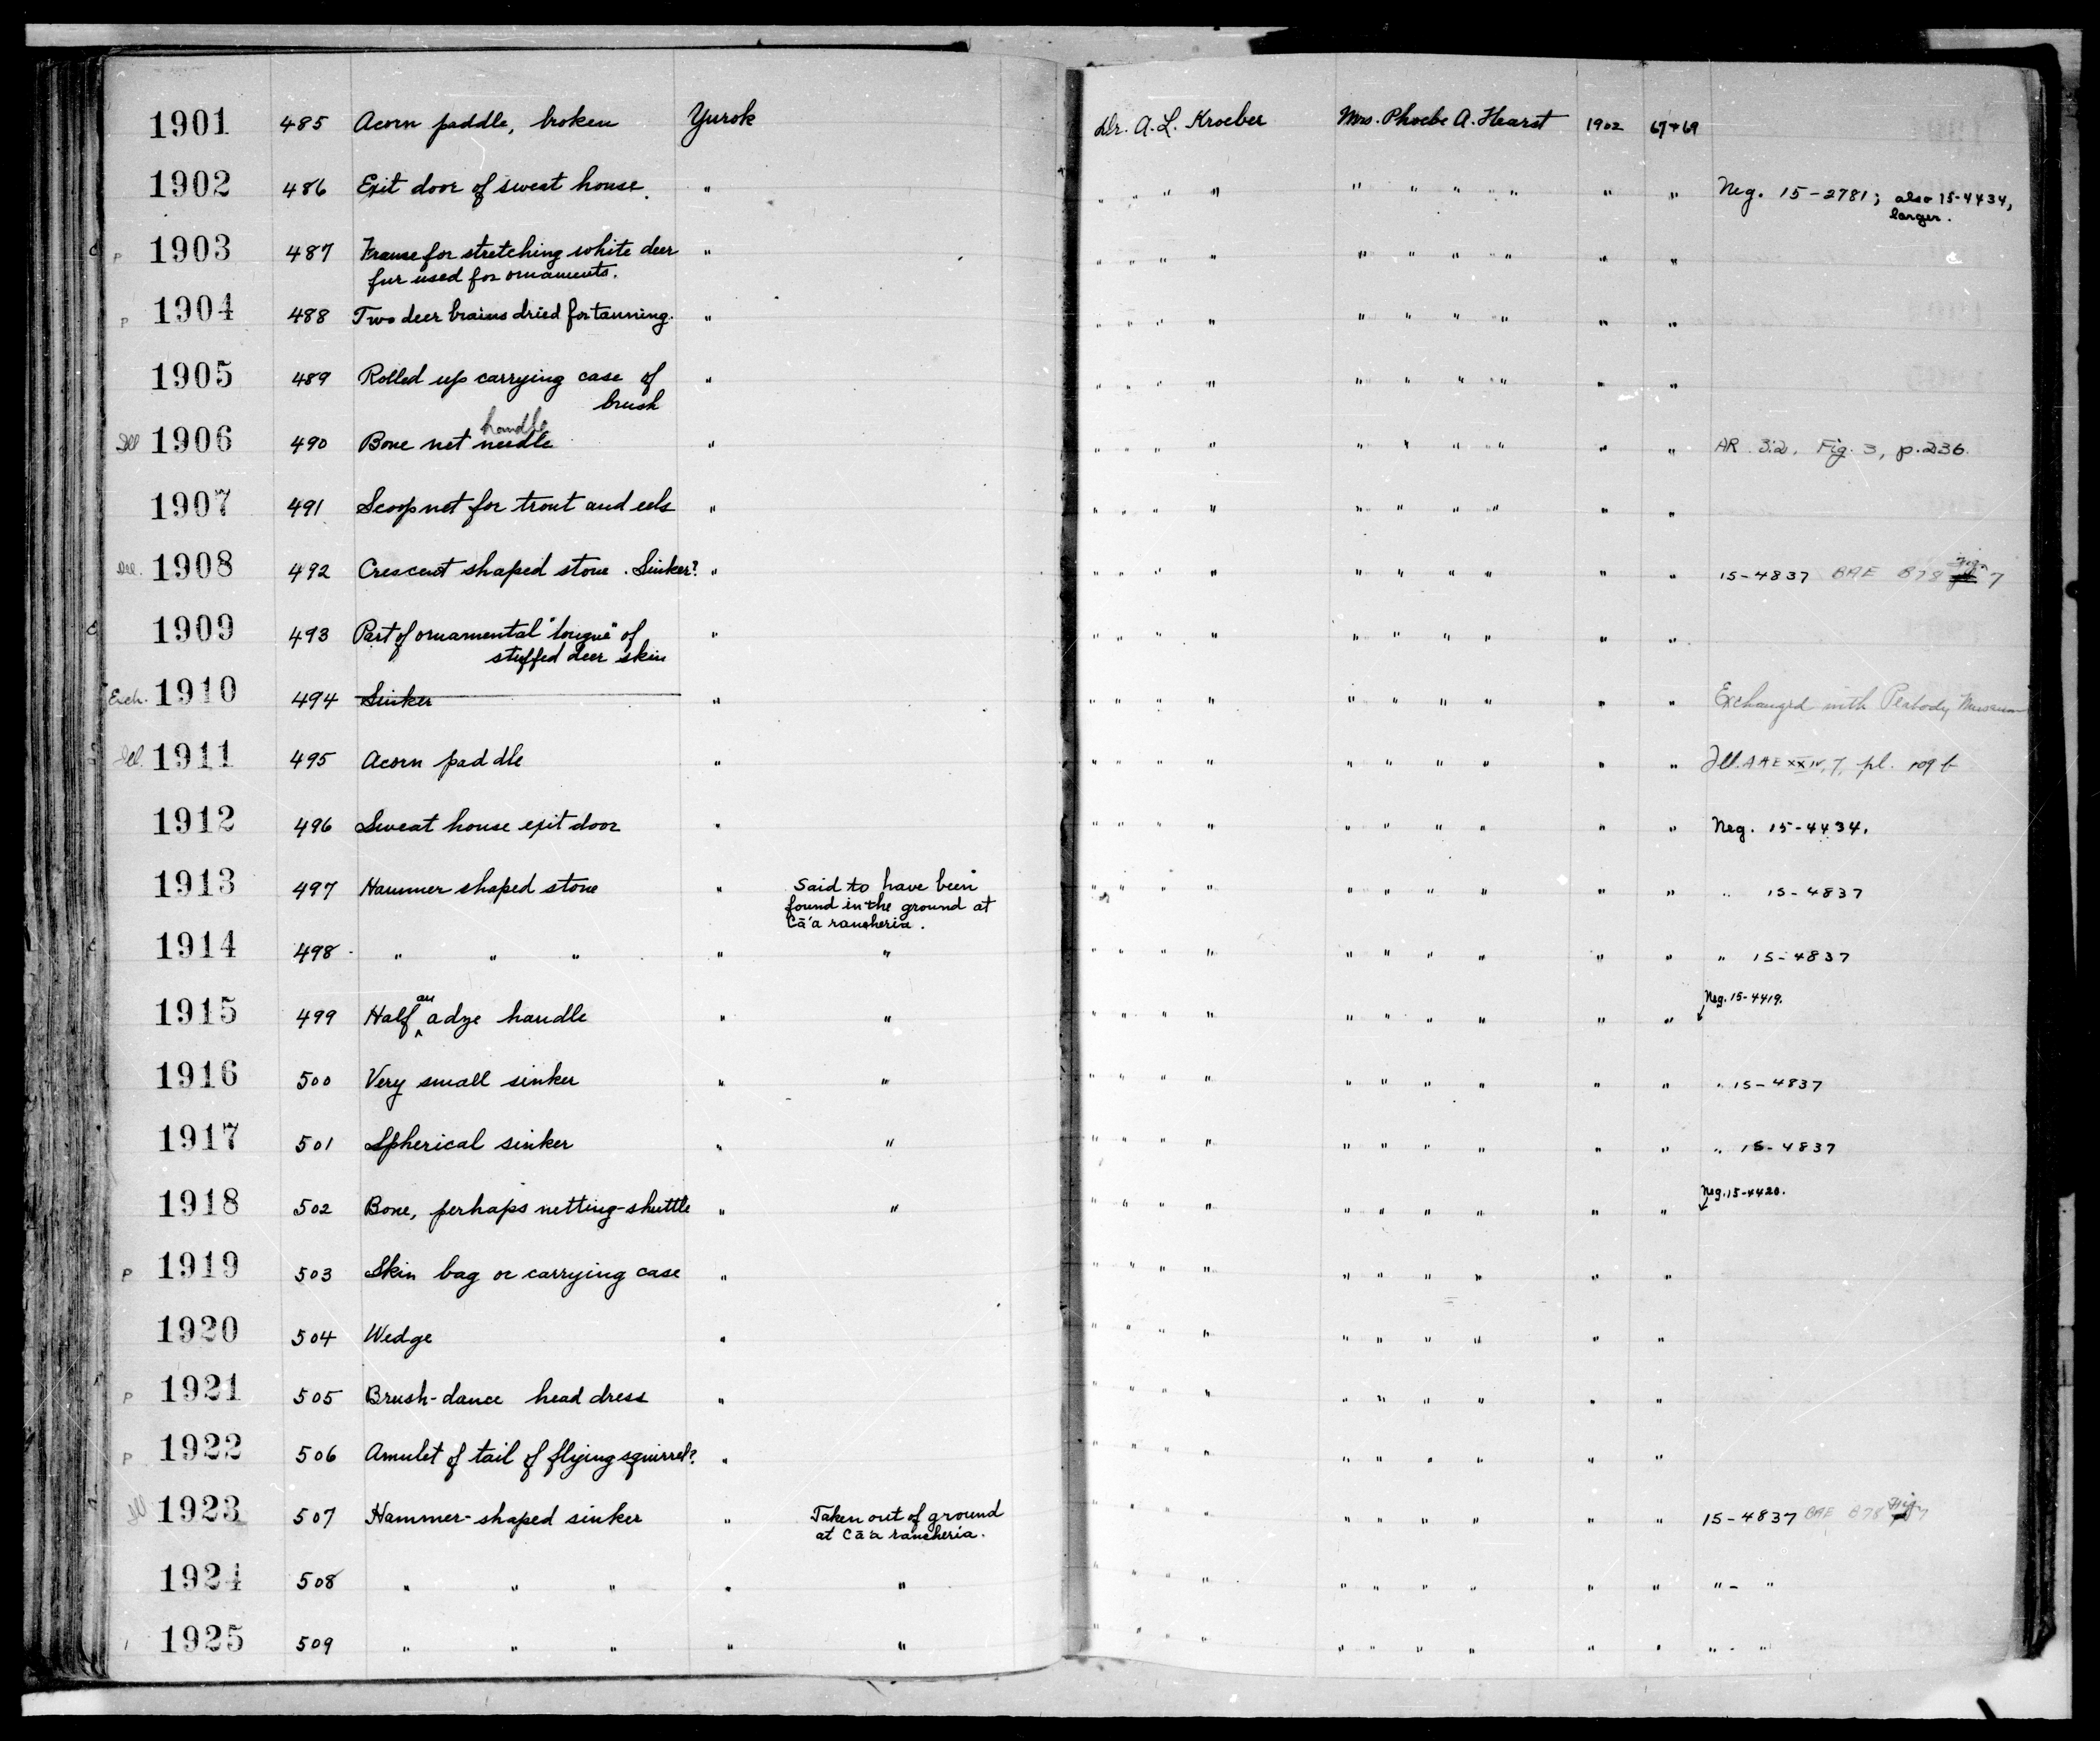 1901 485 Acorn paddle, broken Yurok Dr. A. L. Kroeber Mrs. Phoebe A. Hearst 1902 67+69
1902 486 Exit door of sweat house. " " " " " " " " " " " Neg. 15-2781; also 15-4434,
larger.
P 1903 487 Frame for stretching white deer " " " " " " " " " " "
fur used for ornaments.
P 1904 488 Two deer brains dried for tanning. " " " " " " " " " " "
1905 489 Rolled up carrying case of " " " " " " " " " " "
brush
handle
Ill 1906 490 Bone net needle " " " " " " " " " " " AR 32, Fig. 3, p.236.
1907 491 Scoop net for trout and eels " " " " " " " " " " "
Ill. 1908 492 Crescent shaped stone. Sinker? " " " " " " " " " " " 15-4837 BAE B78 Fig 7
1909 493 Part of ornamental "tongue" of " " " " " " " " " " "
stuffed deer skin
Exch. 1910 494 Sinker " " " " " " " " " " " Exchanged with Peabody Museum
Ill. 1911 495 Acorn paddle " " " " " " " " " " " Ill. AAE XXIV, 7, pl. 109 b
1912 496 Sweat house exit door " " " " " " " " " " " Neg. 15-4434.
1913 497 Hammer shaped stone " Said to have been " " " " " " " " " " " 15-4837
found in the ground at
Cā'a rancheria.
1914 498 " " " " " " " " " " " " " " " " 15-4837
an Neg. 15-4419.
1915 499 Half ^ adze handle " " " " " " " " " " " "
1916 500 Very small sinker " " " " " " " " " " " " " 15-4837
1917 501 Spherical sinker " " " " " " " " " " " " " 15-4837
Neg. 15-4420.
1918 502 Bone, perhaps netting-shuttle " " " " " " " " " " " "
P 1919 503 Skin bag or carrying case " " " " " " " " " " "
1920 504 Wedge " " " " " " " " " " "
P 1921 505 Brush-dance head dress " " " " " " " " " " "
P 1922 506 Amulet of tail of flying squirrel? " " " " " " " " " " "
Ill 1923 507 Hammer-shaped sinker " Taken out of ground " " " " " " " " " " 15-4837 BAE B78 Fig 7
at Cā'a rancheria.
1924 508 " " " " " " " " " " " " " " " " - "
1925 509 " " " " " " " " " " " " " " " " - "